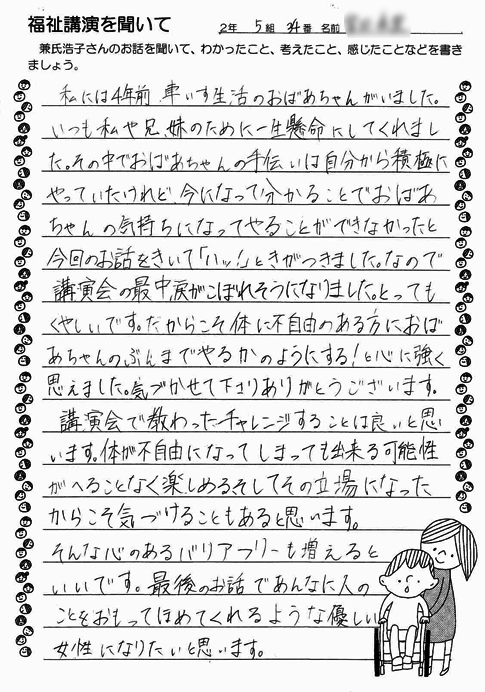 福祉講演を聞いて
2年 5組 34番 名前
兼氏浩子さんのお話を聞いて、わかったこと、考えたこと、感じたことなどを書き
ましょう。
私には4年前、車いす生活のおばあちゃんがいました。
いつも私や兄、妹のために一生懸命にしてくれまし
た。その中でおばあちゃんの手伝いは自分から積極に
やっていたけれど、今になって分かることでおばあ
ちゃんの気持ちになってやることができなかったと
今回のお話をきいて「ハッ!」ときがつきました。なので
講演会の最中涙がこぼれそうになりました。とっても
くやしいです。だからこそ体に不自由のある方におば
あちゃんのぶんまでやるかのようにする!と心に強く
思えました。気づかせて下さりありがとうございます。
講演会で教わったチャレンジすることは良いと思
います。体が不自由になってしまっても出来る可能性
がへることなく楽しめるそしてその立場になった
からこそ気づけることもあると思います。
そんな心のあるバリアフリーも増えると
いいです。最後のお話であんなに人の
ことをおもってほめてくれるような優しい
女性になりたいと思います。